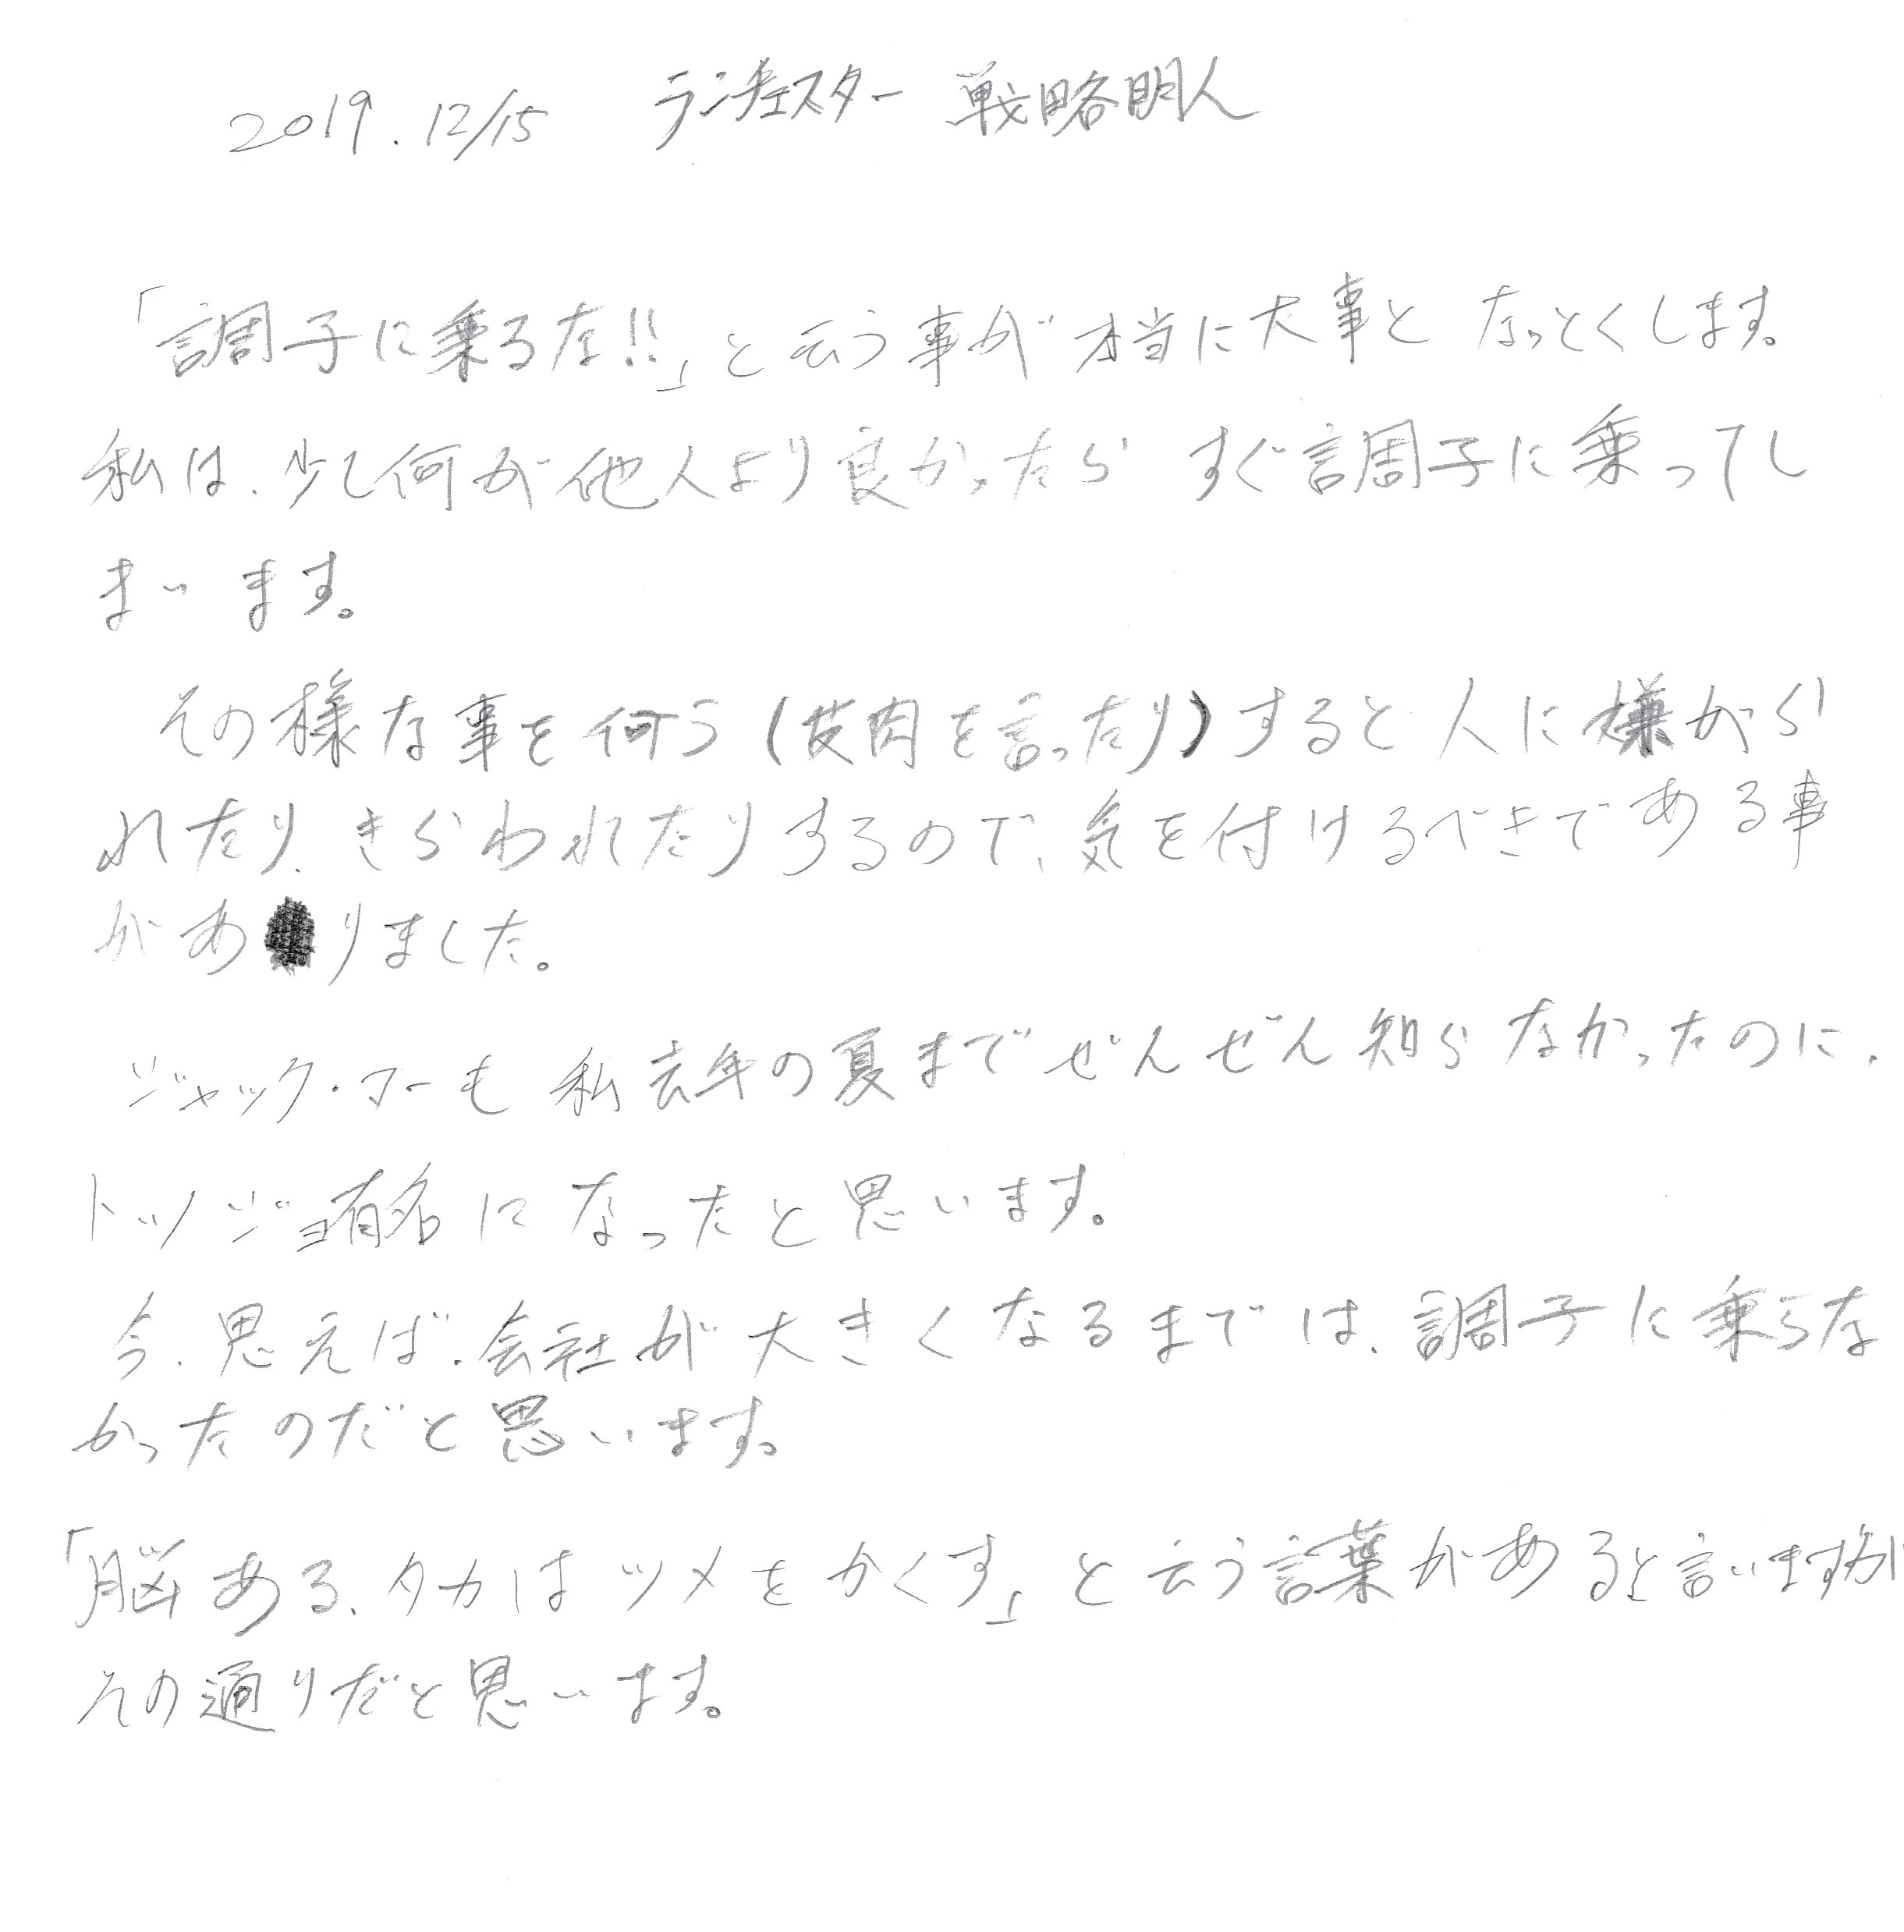 2019. 12/15 ランチェスター 戦略明人
「調子に乗るな!!」と云う事が本当に大事となっとくします。
私は、少し何が他人より良かったら すぐ調子に乗ってし
まいます。
その様な事を何う(皮肉を言ったり)すると人に嫌がら
れたり、きらわれたりするので、気を付けるべきである事
があ りました。
ジャック・マーも 私去年の夏までぜんぜん知らなかったのに、
トツジョ有名になったと思います。
今、思えば、会社が大きくなるまでは、調子に乗らな
かったのだと思います。
「脳ある、タカはツメをかくす」と云う言葉があると言いますが
その通りだと思います。